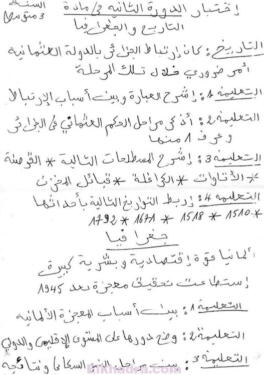 إختبار الدورة الثانية في مادة السنة
التاريخ والجغرافيا 3 متوسط
التاريخ: كان إرتباط الجزائر بالدولة العثمانية
أمر ضروري خلال تلك المرحلة
التعليمة 1: إشرح العبارة وبين أسباب الإرتباط
التعليمة 2: أذكر مراحل الحكم العثماني في الجزائر
وعرف 1 منها
التعليمة 3: إشرح المصطلحات التالية * القرصنة
* الأتاوات * الكراغلة * قبائل المخزن
التعليمة 4: إربط التواريخ التالية بأحداثها
1510 * 1518 * 1671 * 1792
جغرافيا
ألمانيا قوة إقتصادية وبشرية كبيرة
إستطاعت تحقيق معجزة بعد 1945
التعليمة 1: بين أسباب المعجزة الألمانية
التعليمة 2: وضح دورها على المستوى الإقليمي والدولي
التعليمة 3: بين مراحل النمو السكاني ونتائجه